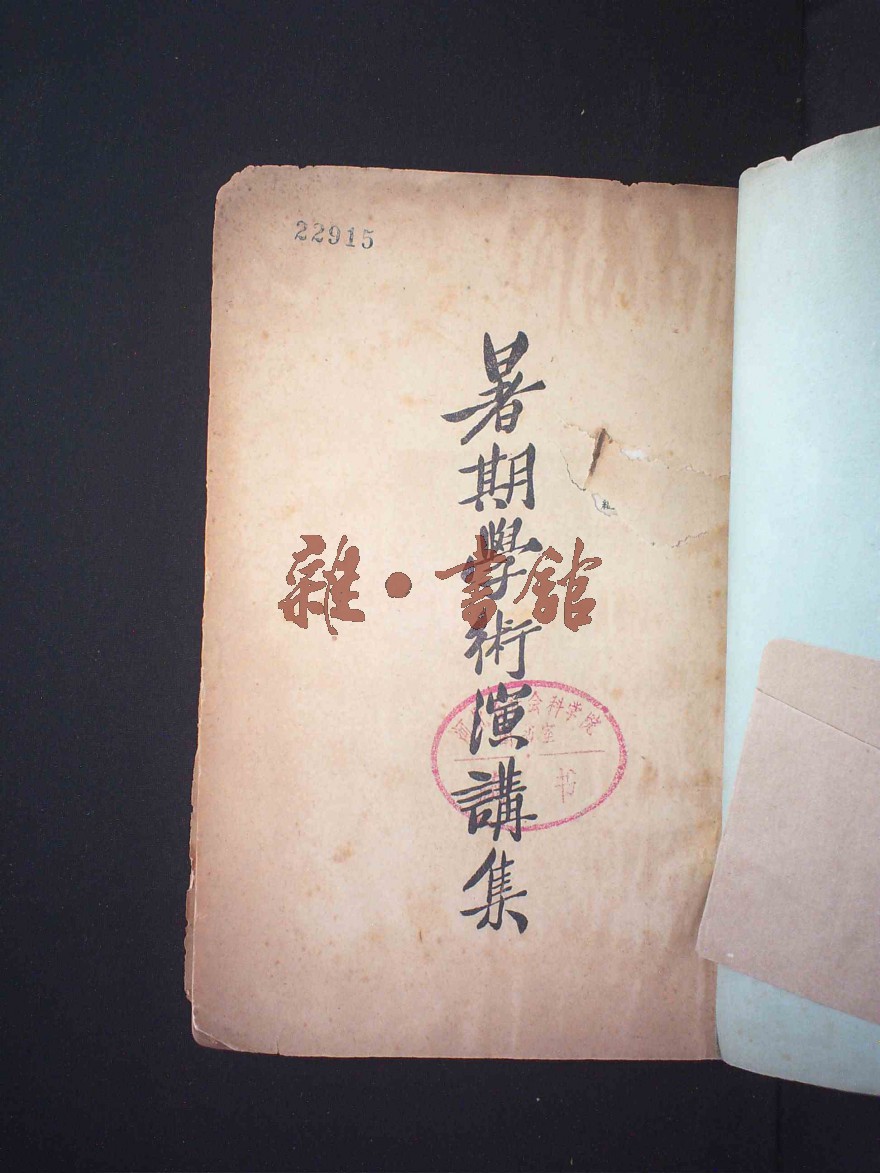 22915
暑期學術演講集
雜·書館
会科学院
书